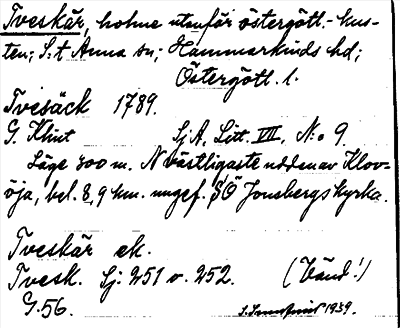 Tveskär, holme utanför östergötl.-kus-
ten; S:t Anna sn; Hammarkinds hd;
Östergötl. l.
Tvesäck 1789.
G. Klint Sj A, Litt. VII, N:o 9.
Läge 300 m. N västligaste udden av Klov-
öja, bel. 8,9 km. ungef. SÖ Jonsbergs kyrka.
Tveskär ek.
Tvesk. Sj: 251 o. 252. (Vänd!)
G. 56. 1939.